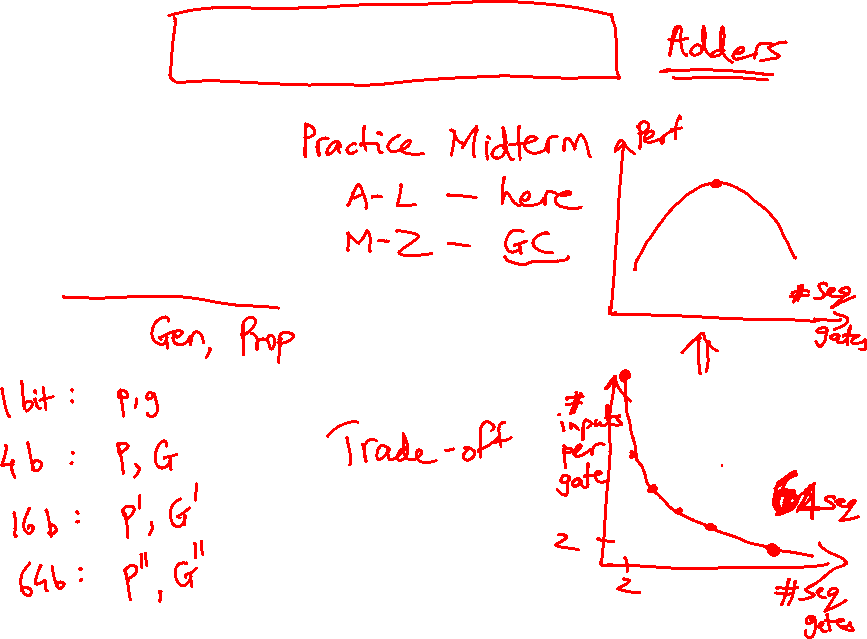 Adders
Practice Midterm
A-L - here
M-Z - GC
Perf
# seq
gates
Gen, Prop
1 bit: p, g
4 b: P, G
16 b: P', G'
64b: P", G"
Trade-off
#
inputs
per
gate
2
2
64 seq
# seq
gates